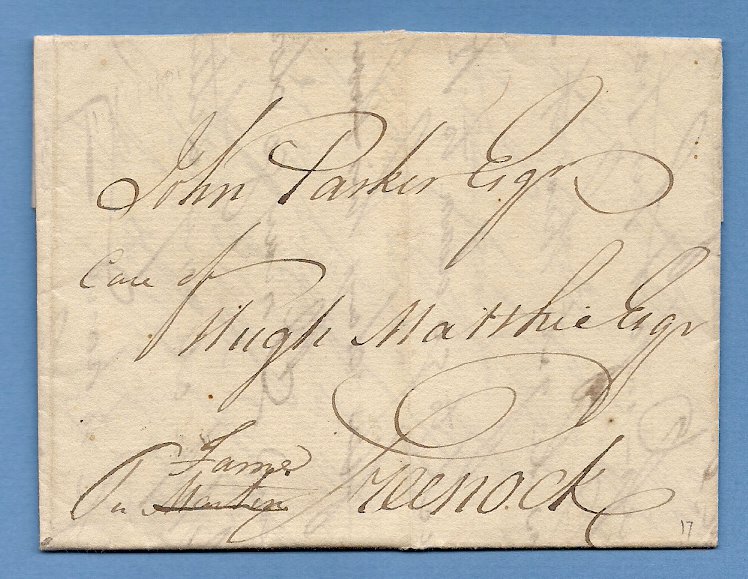 John Parker Esqr
Care of
Hugh Matthie Esqr
Greenock
Fame
Pr
17